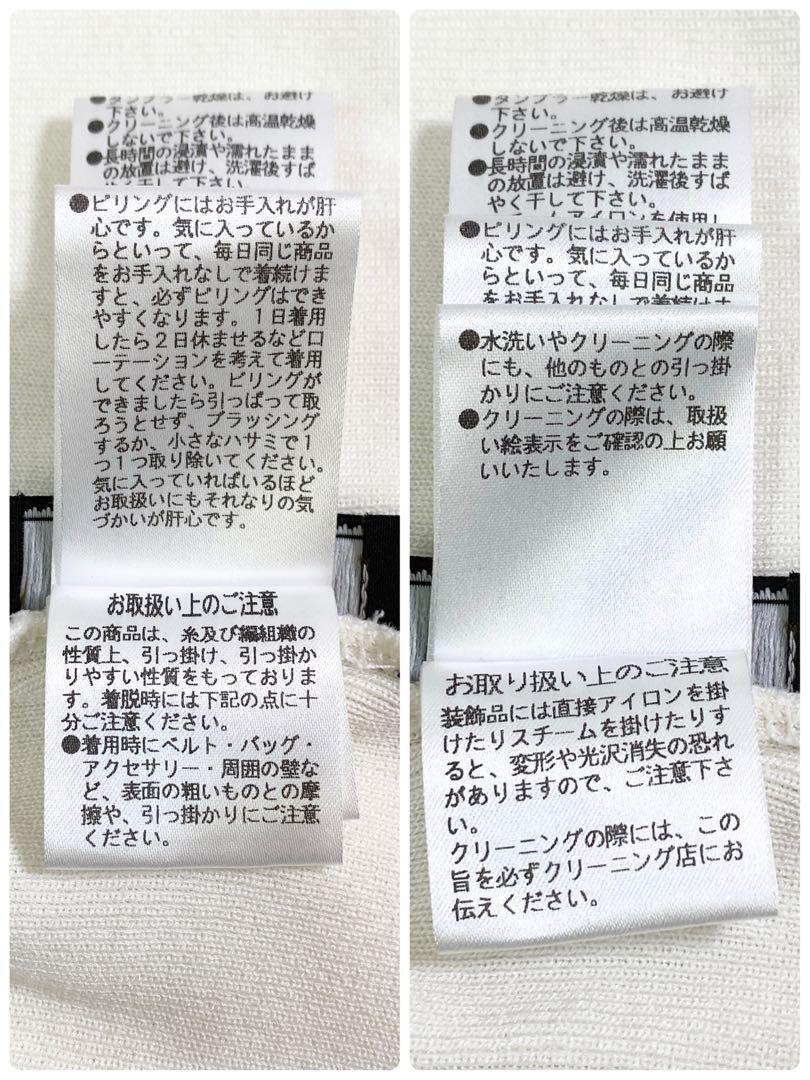 ●タンブラー乾燥は、お避け
下さい。
●クリーニング後は高温乾燥
しないで下さい。
●長時間の浸漬や濡れたまま
の放置は避け、洗濯後すば
やく干して下さい。
●ピリングにはお手入れが肝
心です。気に入っているか
らといって、毎日同じ商品
をお手入れなしで着続けま
すと、必ずピリングはでき
やすくなります。1日着用
したら2日休ませるなどロ
ーテーションを考えて着用
してください。ピリングが
できましたら引っぱって取
ろうとせず、ブラッシング
するか、小さなハサミで1
つ1つ取り除いてください。
気に入っていればいるほど
お取扱いにもそれなりの気
づかいが肝心です。
お取扱い上のご注意
この商品は、糸及び編組織の
性質上、引っ掛け、引っ掛か
りやすい性質をもっておりま
す。着脱時には下記の点に十
分ご注意ください。
●着用時にベルト・バッグ・
アクセサリー・周囲の壁な
ど、表面の粗いものとの摩
擦や、引っ掛かりにご注意
ください。
●タンブラー乾燥は、お避け
下さい。
●クリーニング後は高温乾燥
しないで下さい。
●長時間の浸漬や濡れたまま
の放置は避け、洗濯後すば
やく干して下さい。
アイロンを使用し
●ピリングにはお手入れが肝
心です。気に入っているか
らといって、毎日同じ商品
をお手入れなしで着続けま
●水洗いやクリーニングの際
にも、他のものとの引っ掛
かりにご注意ください。
●クリーニングの際は、取扱
い絵表示をご確認の上お願
いいたします。
お取り扱い上のご注意
装飾品には直接アイロンを掛
けたりスチームを掛けたりす
ると、変形や光沢消失の恐れ
がありますので、ご注意下さ
い。
クリーニングの際には、この
旨を必ずクリーニング店にお
伝えください。